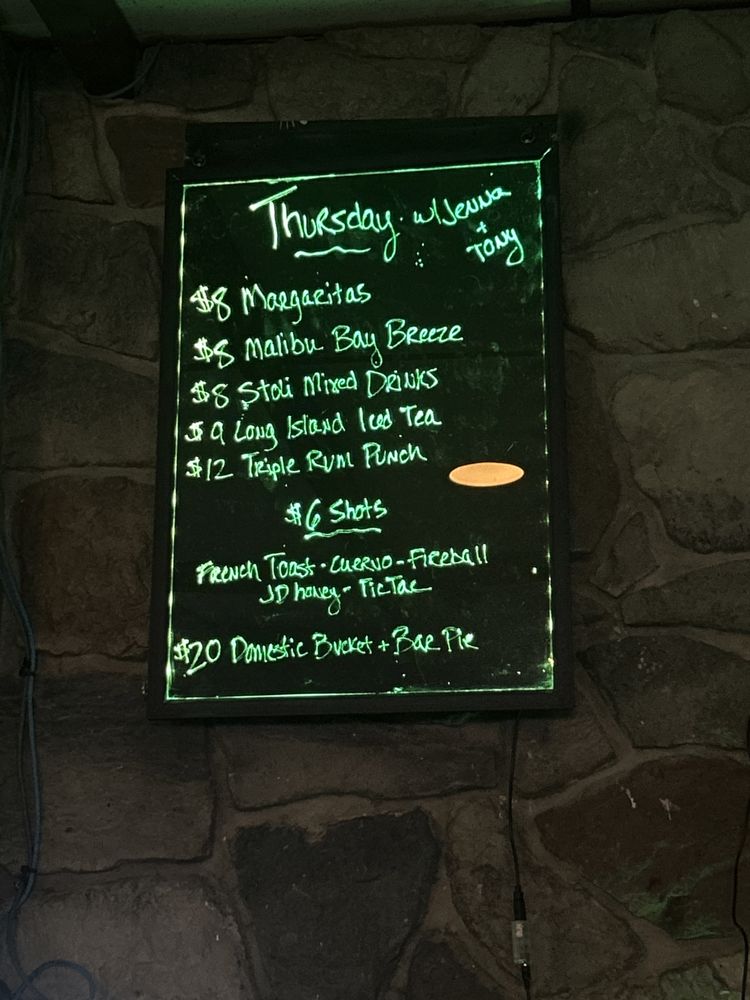 Thursday w/Jenna
+
Tony
$8 Margaritas
$8 Malibu Bay Breeze
$8 Stoli Mixed Drinks
$9 Long Island Iced Tea
$12 Triple Rum Punch
$6 Shots
French Toast · Cuervo - Fireball
JD honey - TicTac
$20 Domestic Bucket + Bar Pie